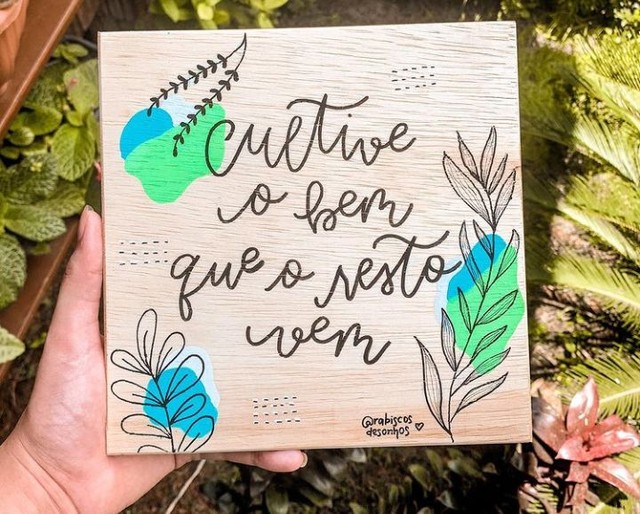 Cultive
o bem
que o resto
vem
@rabiscos
desonhos